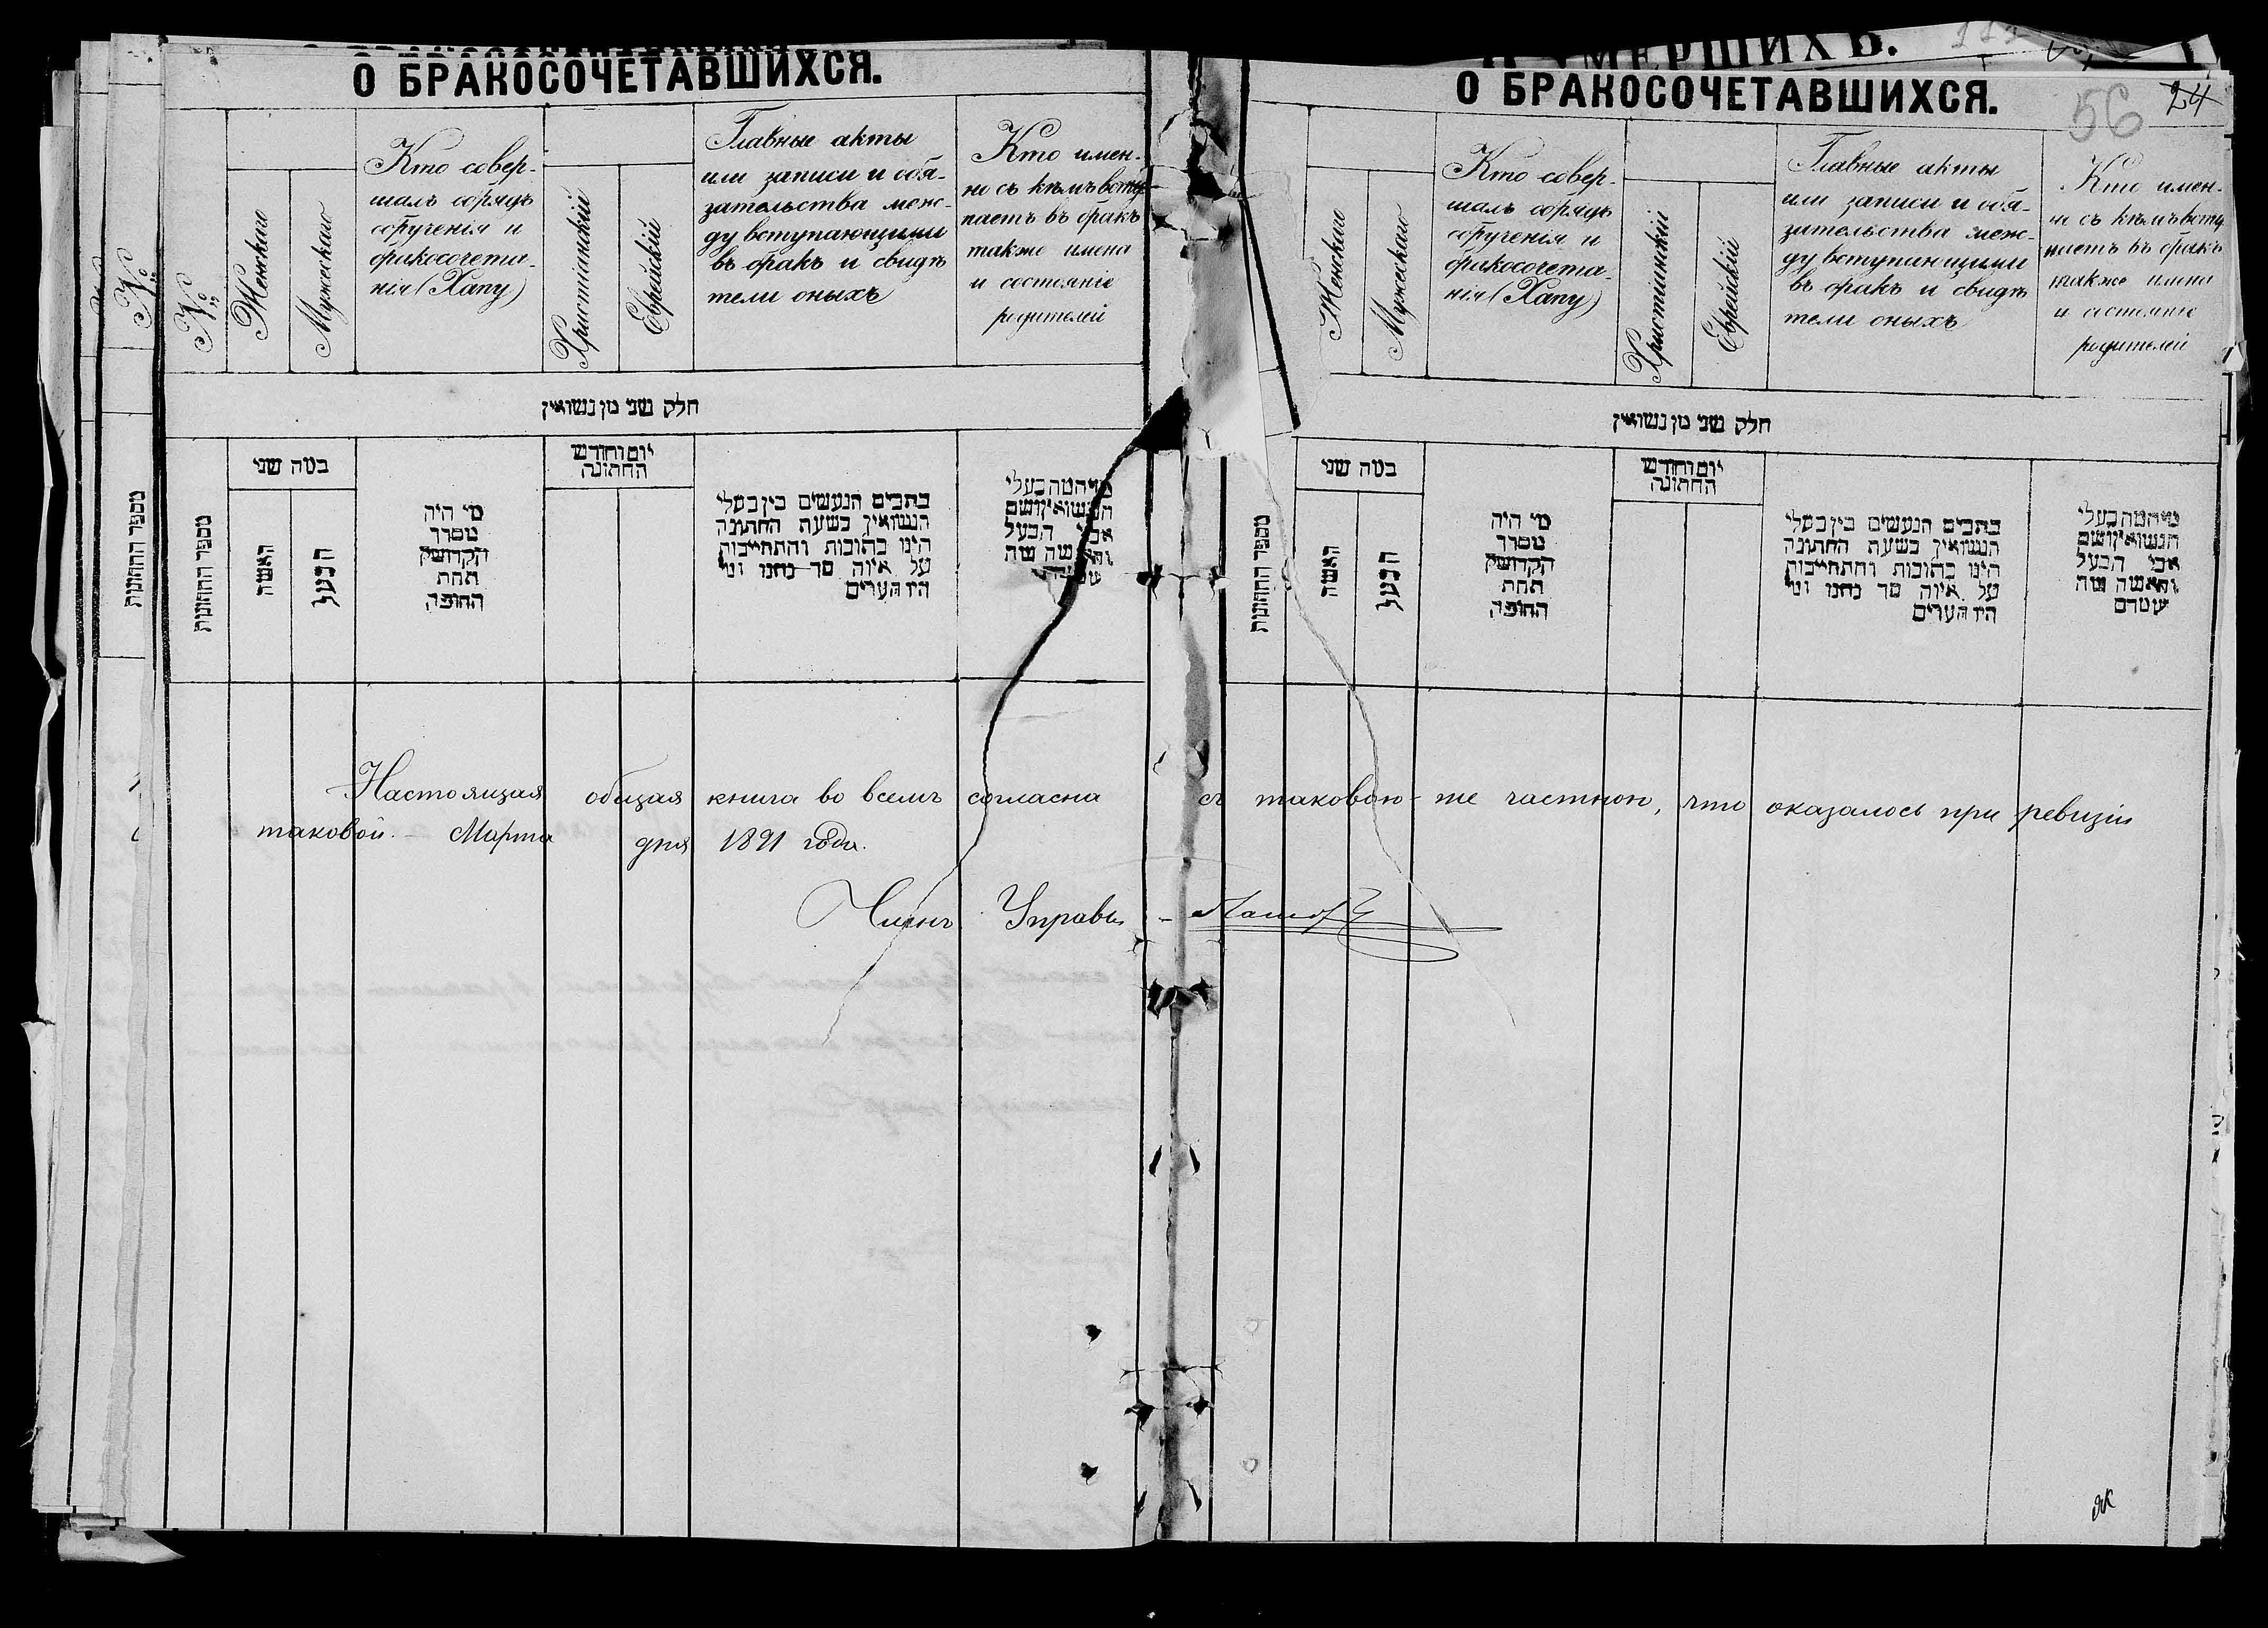 О БРАКОСОЧЕТАВШИХСЯ.
№
Женскаго
Мужескаго
Кто совер-
шалъ обрядъ
обрученія и
бракосочета-
нія (Хапу)
Христіанскій
Еврейскій
Главные акты
или записи и обя-
зательства меж-
ду вступающими
въ бракъ и свидѣ
тели оныхъ
Кто имен-
но съ кѣмъ всту-
паетъ въ бракъ
также имена
и состояніе
родителей
חלק שני מן נשואין
מספר החתונות
במה שני
האשה
הבעל
מי היה
מסדר
הקדושין
תחת
החופה
יום וחודש
החתונה
כתבים הנעשים בין בעלי
הנשואין בשעת החתונה
היינו כתובות והתחייבות
על איזה סך נתנו ומי
היו העדים
הנשואין ושם
אבי הבעל
О УМЕРШИХЪ.
О БРАКОСОЧЕТАВШИХСЯ.
56
24
Женскаго
Мужескаго
Кто совер-
шалъ обрядъ
обрученія и
бракосочета-
нія (Хапу)
Христіанскій
Еврейскій
Главные акты
или записи и обя-
зательства меж-
ду вступающими
въ бракъ и свидѣ
тели оныхъ
Кто имен-
но съ кѣмъ всту
паетъ въ бракъ
также имена
и состояніе
родителей
חלק שני מן נשואין
מספר החתונות
במה שני
האשה
הבעל
מי היה
מסדר
הקדושין
תחת
החופה
יום וחודש
החתונה
כתבים הנעשים בין בעלי
הנשואין בשעת החתונה
היינו כתובות והתחייבות
על איזה סך נתנו ומי
היו העדים
מי המה בעלי
הנשואין ושם
אבי הבעל
והאשה מה
שמדם
Настоящая общая книга во всемъ согласна съ таковою-же частною, что оказалось при ревизіи
таковой. — Марта дня 1891 года.
Членъ Управы